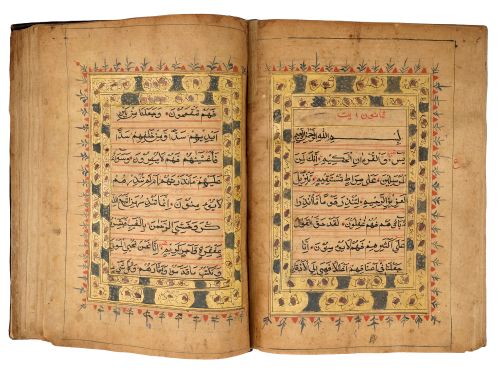 ثمانون ايت
بسم الله الرحمن الرحيم
يس والقرءان الحكيم انك لمن
المرسلين على صراط مستقيم تنزيل
العزيز الرحيم لتنذر قوما ما انذر
اباؤهم فهم غفلون لقد حق القول
على اكثرهم فهم لا يؤمنون انا
جعلنا في اعناقهم اغللا فهي الى الاذقا
فهم مقمحون وجعلنا من بين
ايديهم سدا ومن خلفهم سدا
فاغشينهم فهم لا يبصرون وسواء
عليهم ءانذرتهم ام لم تنذرهم
لا يؤمنون انما تنذر من اتبع الذ
كر وخشي الرحمن بالغيب فبشره
بمغفرة واجر كريم انا نحن نحي الموتى
ونكتب ما قدموا واثارهم وكل شيء